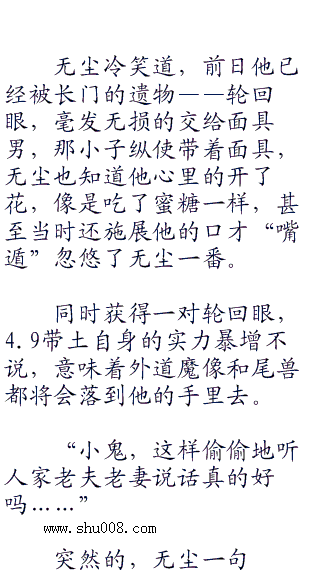 无尘冷笑道，前日他已
经被长门的遗物——轮回
眼，毫发无损的交给面具
男，那小子纵使带着面具，
无尘也知道他心里的开了
花，像是吃了蜜糖一样，甚
至当时还施展他的口才“嘴
遁”忽悠了无尘一番。
同时获得一对轮回眼，
4.9带土自身的实力暴增不
说，意味着外道魔像和尾兽
都将会落到他的手里去。
“小鬼，这样偷偷地听
人家老夫老妻说话真的好
吗……”
www.shu008.com
突然的，无尘一句